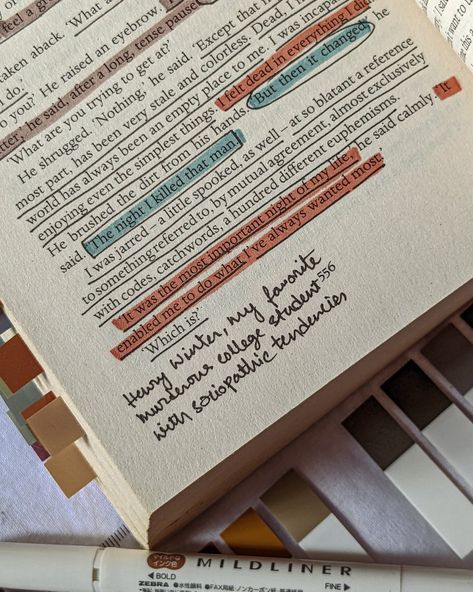 feel a g
taken aback. 'What a
I do.'
o you? He raised an eyebrow.
tter; he said, after a long, tense pause
What are you trying to get at?'
He shrugged. 'Nothing,' he said. 'Except that
most part, has been very stale and colorless. Dead, I
world has always been an empty place to me. I was incapa
enjoying even the simplest things. I felt dead in everything I did.
He brushed the dirt from his hands. 'But then it changed,' he
said. 'The night I killed that man.'
I was jarred – a little spooked, as well – at so blatant a reference
to something referred to, by mutual agreement, almost exclusively
with codes, catchwords, a hundred different euphemisms.
'It was the most important night of my life,' he said calmly. 'It
enabled me to do what I've always wanted most.'
'Which is?'
556
Henry Winter, my favorite
murderous college student
with sociopathic tendencies
マイルドな
インク色
MILDLINER
◀BOLD
FINE▶
ZEBRA ●水性顔料 ●FAX用紙・ノンカーボン紙・